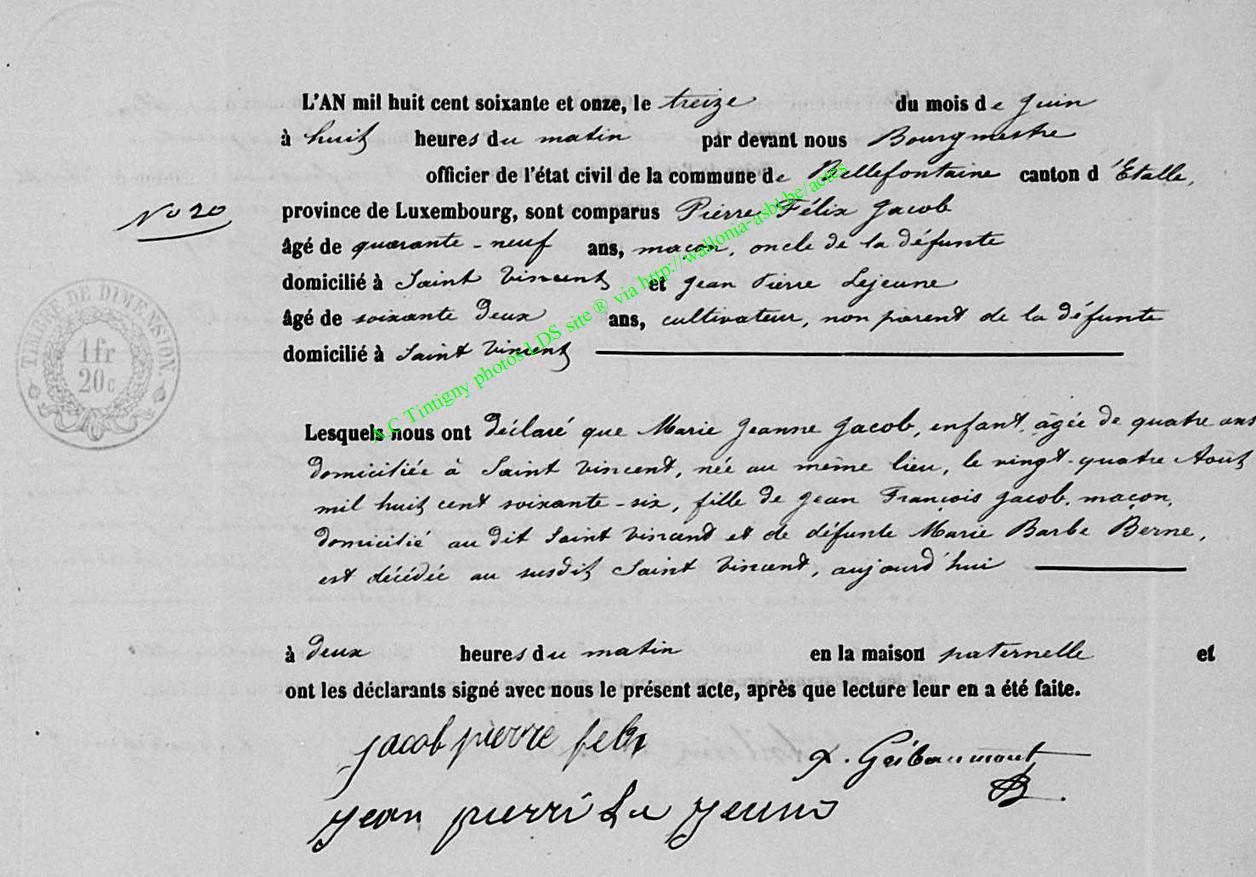 L'AN mil huit cent soixante et onze, le treize du mois de Juin
à huit heures du matin par devant nous Bourgmestre
officier de l'état civil de la commune de Bellefontaine canton d'Etalle,
No 20
province de Luxembourg, sont comparus Pierre Félix Jacob
âgé de quarante-neuf ans, maçon, oncle de la défunte
domicilié à Saint Vincent et Jean Pierre Lejeune
âgé de soixante deux ans, cultivateur, non parent de la défunte
domicilié à Saint Vincent
TIMBRE DE DIMENSION
1 fr
20 c
A.C Tintigny photos LDS site ® via http://wallonia-asbl.be/actes
Lesquels nous ont déclaré que Marie Jeanne Jacob, enfant, âgée de quatre ans
domiciliée à Saint Vincent, née au même lieu, le vingt-quatre Août
mil huit cent soixante-six, fille de Jean François Jacob, maçon,
domicilié au dit Saint Vincent et de défunte Marie Barbe Berne,
est décédée au susdit Saint Vincent, aujourd'hui
à deux heures du matin en la maison paternelle et
ont les déclarants signé avec nous le présent acte, après que lecture leur en a été faite.
jacob pierre felix
Gribaumont
jean pierre Le jeune